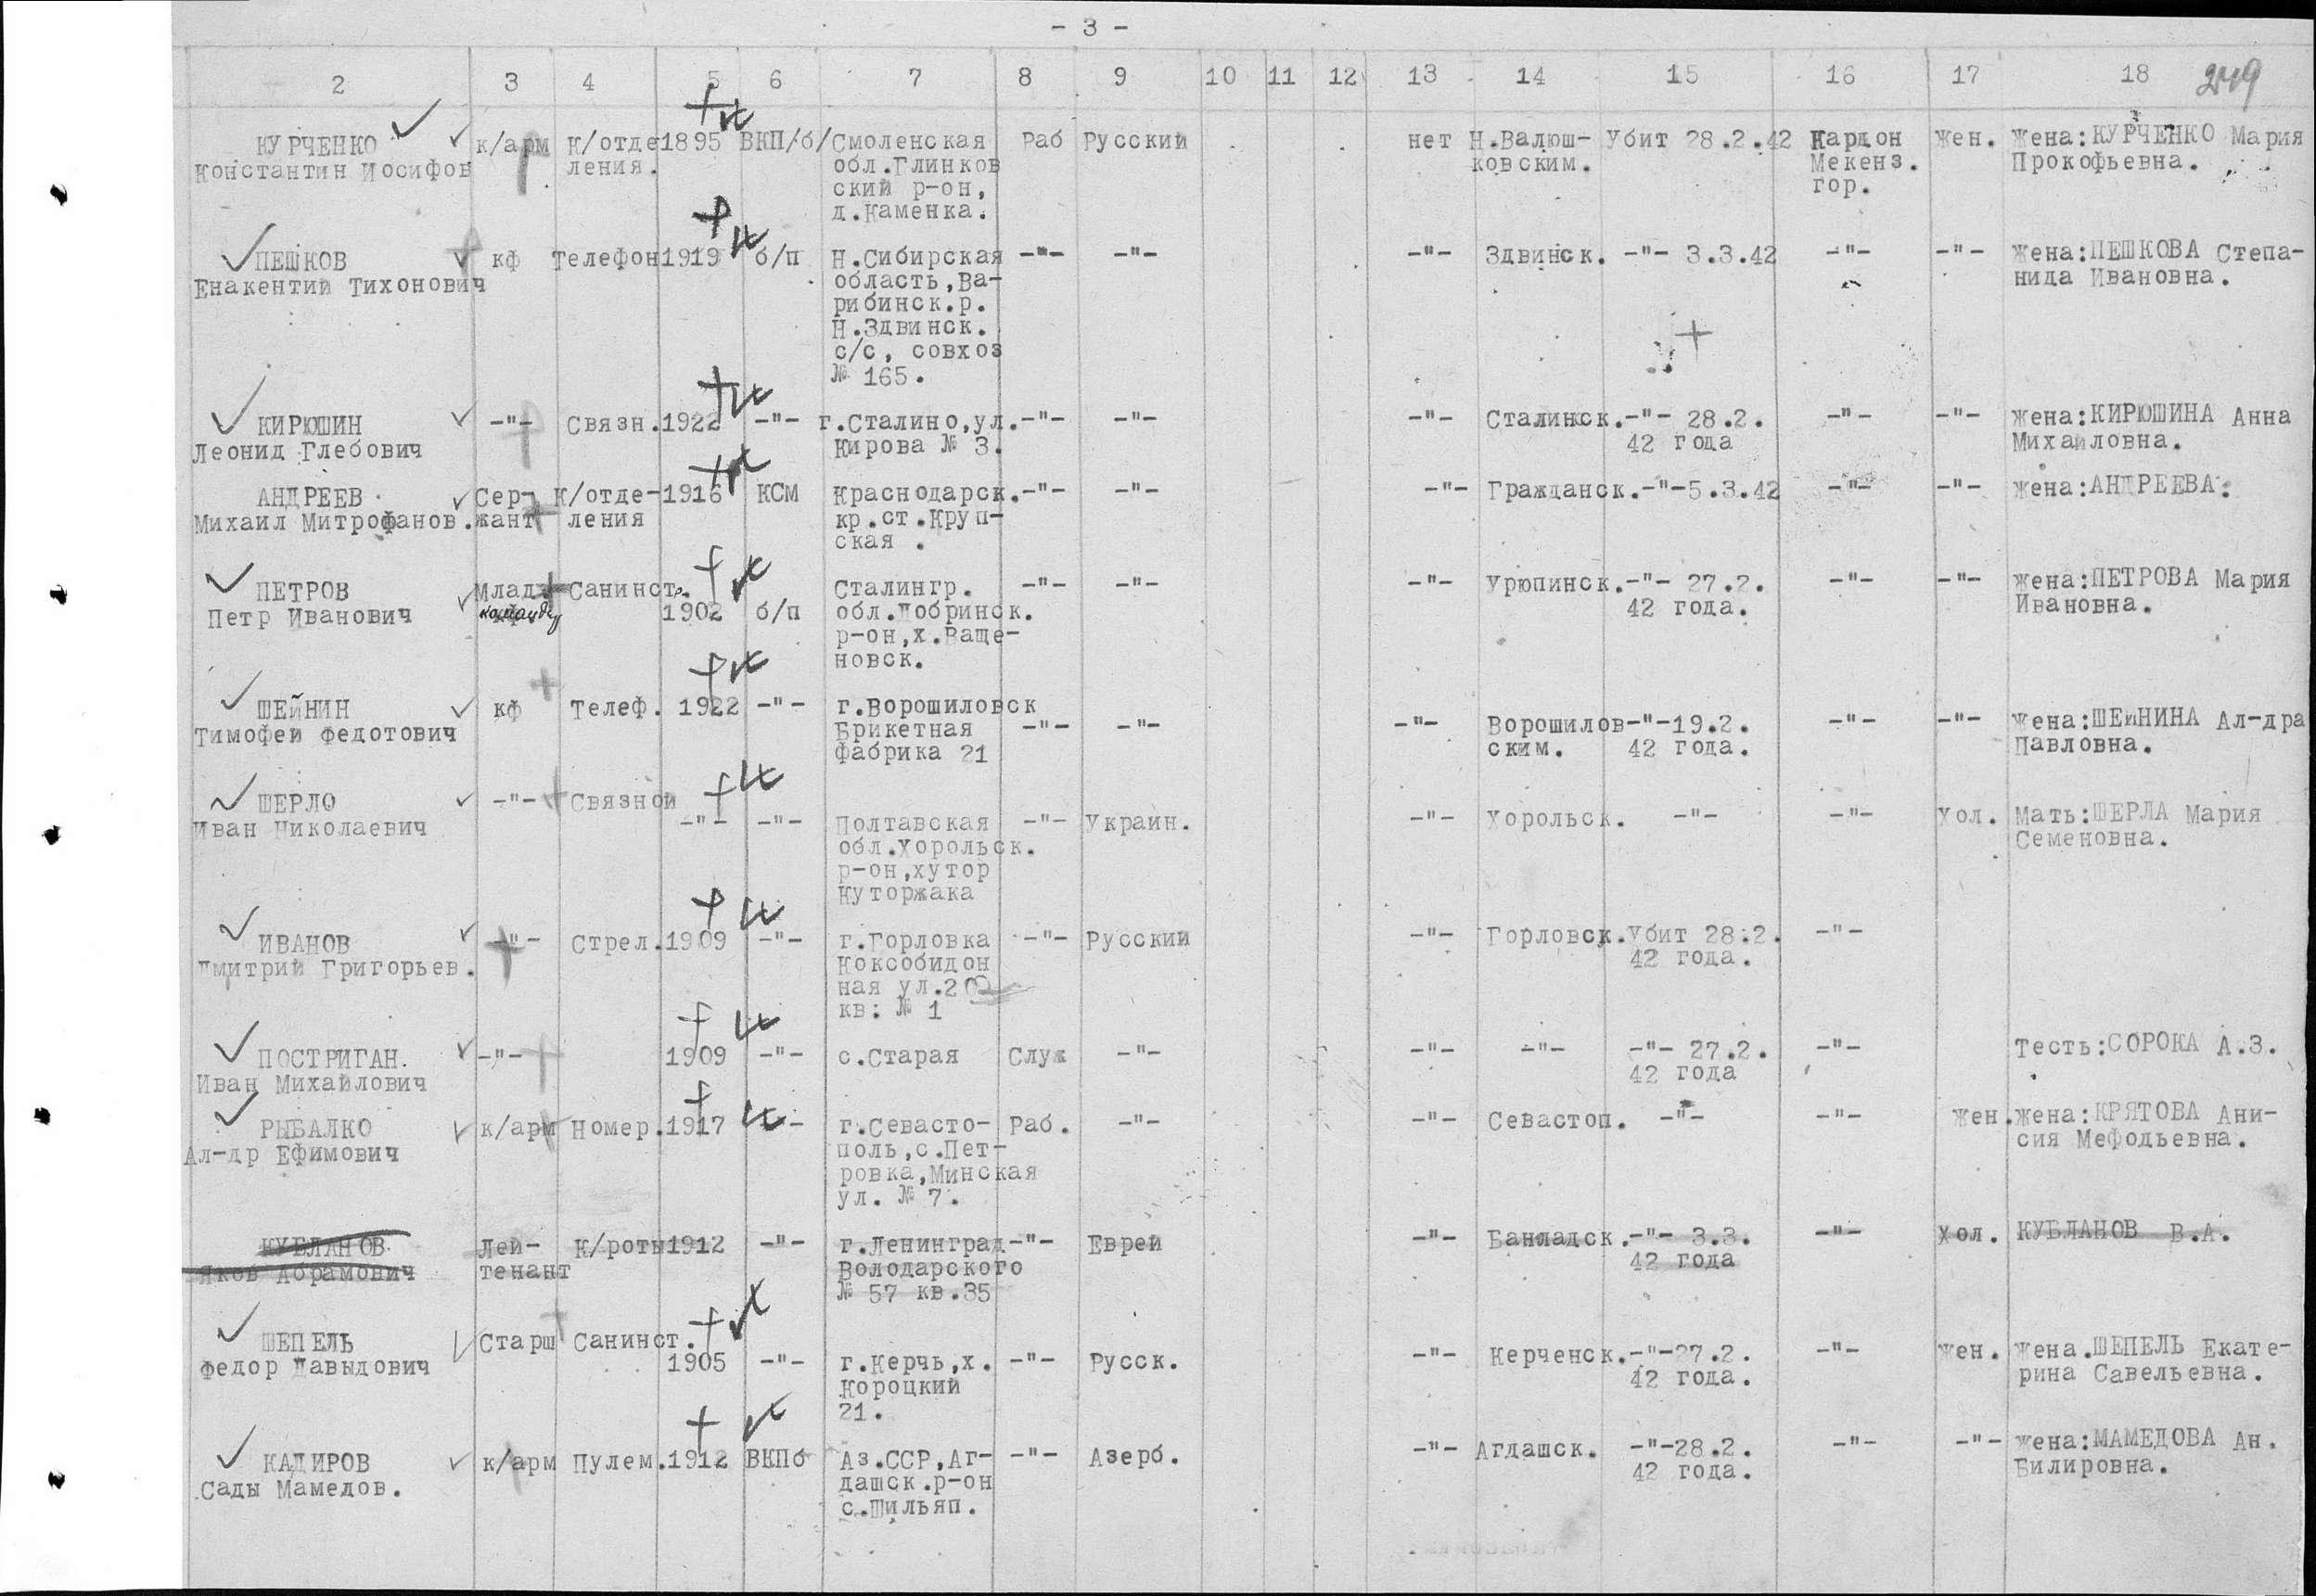 - 3 -
2 3 4 5 6 7 8 9 10 11 12 13 14 15 16 17 18 249
КУРЧЕНКО к/арм К/отде 1895 ВКП/б/ Смоленская Раб Русский нет Н.Валюш- Убит 28.2.42 Кардон Жен. Жена:КУРЧЕНКО Мария
Константин Иосифов ления. обл.Глинков ковским. Мекенз. Прокофьевна.
ский р-он, гор.
д.Каменка.
ПЕШКОВ кф Телефон 1919 б/п Н.Сибирская -"- -"- -"- Здвинск. -"- 3.3.42 -"- -"- Жена:ПЕШКОВА Степа-
Енакентий Тихонович область,Ва- нида Ивановна.
рибинск.р.
Н.Здвинск.
с/с, совхоз
№ 165.
КИРЮШИН -"- Связн. 1922 -"- г.Сталино,ул. -"- -"- -"- Сталинск. -"- 28.2. -"- -"- Жена:КИРЮШИНА Анна
Леонид Глебович Кирова № 3. 42 года Михайловна.
АНДРЕЕВ Сер- К/отде- 1916 КСМ Краснодарск. -"- -"- -"- Гражданск. -"-5.3.42 -"- -"- Жена:АНДРЕЕВА.
Михаил Митрофанов. жант ления кр.ст.Круп-
ская .
ПЕТРОВ Млад. Санинст. Сталингр. -"- -"- -"- Урюпинск. -"- 27.2. -"- -"- Жена:ПЕТРОВА Мария
Петр Иванович 1902 б/п обл.Добринск. 42 года. Ивановна.
р-он,х.Ваще-
новск.
ШЕЙНИН кф Телеф. 1922 -"- г.Ворошиловск -"- -"- -"- Ворошилов -"-19.2. -"- -"- Жена:ШЕЙНИНА Ал-дра
Тимофей Федотович Брикетная ским. 42 года. Павловна.
фабрика 21
ШЕРЛО -"- Связной
Иван Николаевич -"- -"- Полтавская -"- Украин. -"- Хорольск. -"- -"- Хол. Мать:ШЕРЛА Мария
обл.Хорольск. Семеновна.
р-он,хутор
Куторжака
ИВАНОВ -"- Стрел. 1909 -"- г.Горловка -"- Русский -"- Горловск. Убит 28.2. -"-
Дмитрий Григорьев. Коксобидон 42 года.
ная ул.20
кв: № 1
ПОСТРИГАН. -"- 1909 -"- с.Старая Служ -"- -"- -"- -"- 27.2. -"- Тесть:СОРОКА А.З.
Иван Михайлович 42 года
РЫБАЛКО к/арм Номер. 1917 -"- г.Севасто- Раб. -"- -"- Севастоп. -"- -"- Жен. Жена:КРЯТОВА Ани-
Ал-др Ефимович поль,с.Пет- сия Мефодьевна.
ровка,Минская
ул. № 7.
КУБЛАНОВ Лей- К/роты 1912 -"- г.Ленинград -"- Еврей -"- Банладск. -"- 3.3. -"- Хол. КУБЛАНОВ В.А.
Яков Абрамович тенант Володарского 42 года
№ 57 кв.35
ШЕПЕЛЬ Старш Санинст.
Федор Давыдович 1905 -"- г.Керчь,х. -"- Русск. -"- Керченск. -"-27.2. -"- Жен. Жена.ШЕПЕЛЬ Екате-
Короцкий 42 года. рина Савельевна.
21.
КАДИРОВ к/арм Пулем. 1912 ВКПб Аз.ССР,Аг- -"- Азерб. -"- Агдашск. -"-28.2. -"- -"- Жена:МАМЕДОВА Ан.
Сады Мамедов. дашск.р-он 42 года. Билировна.
с.Шильяп.